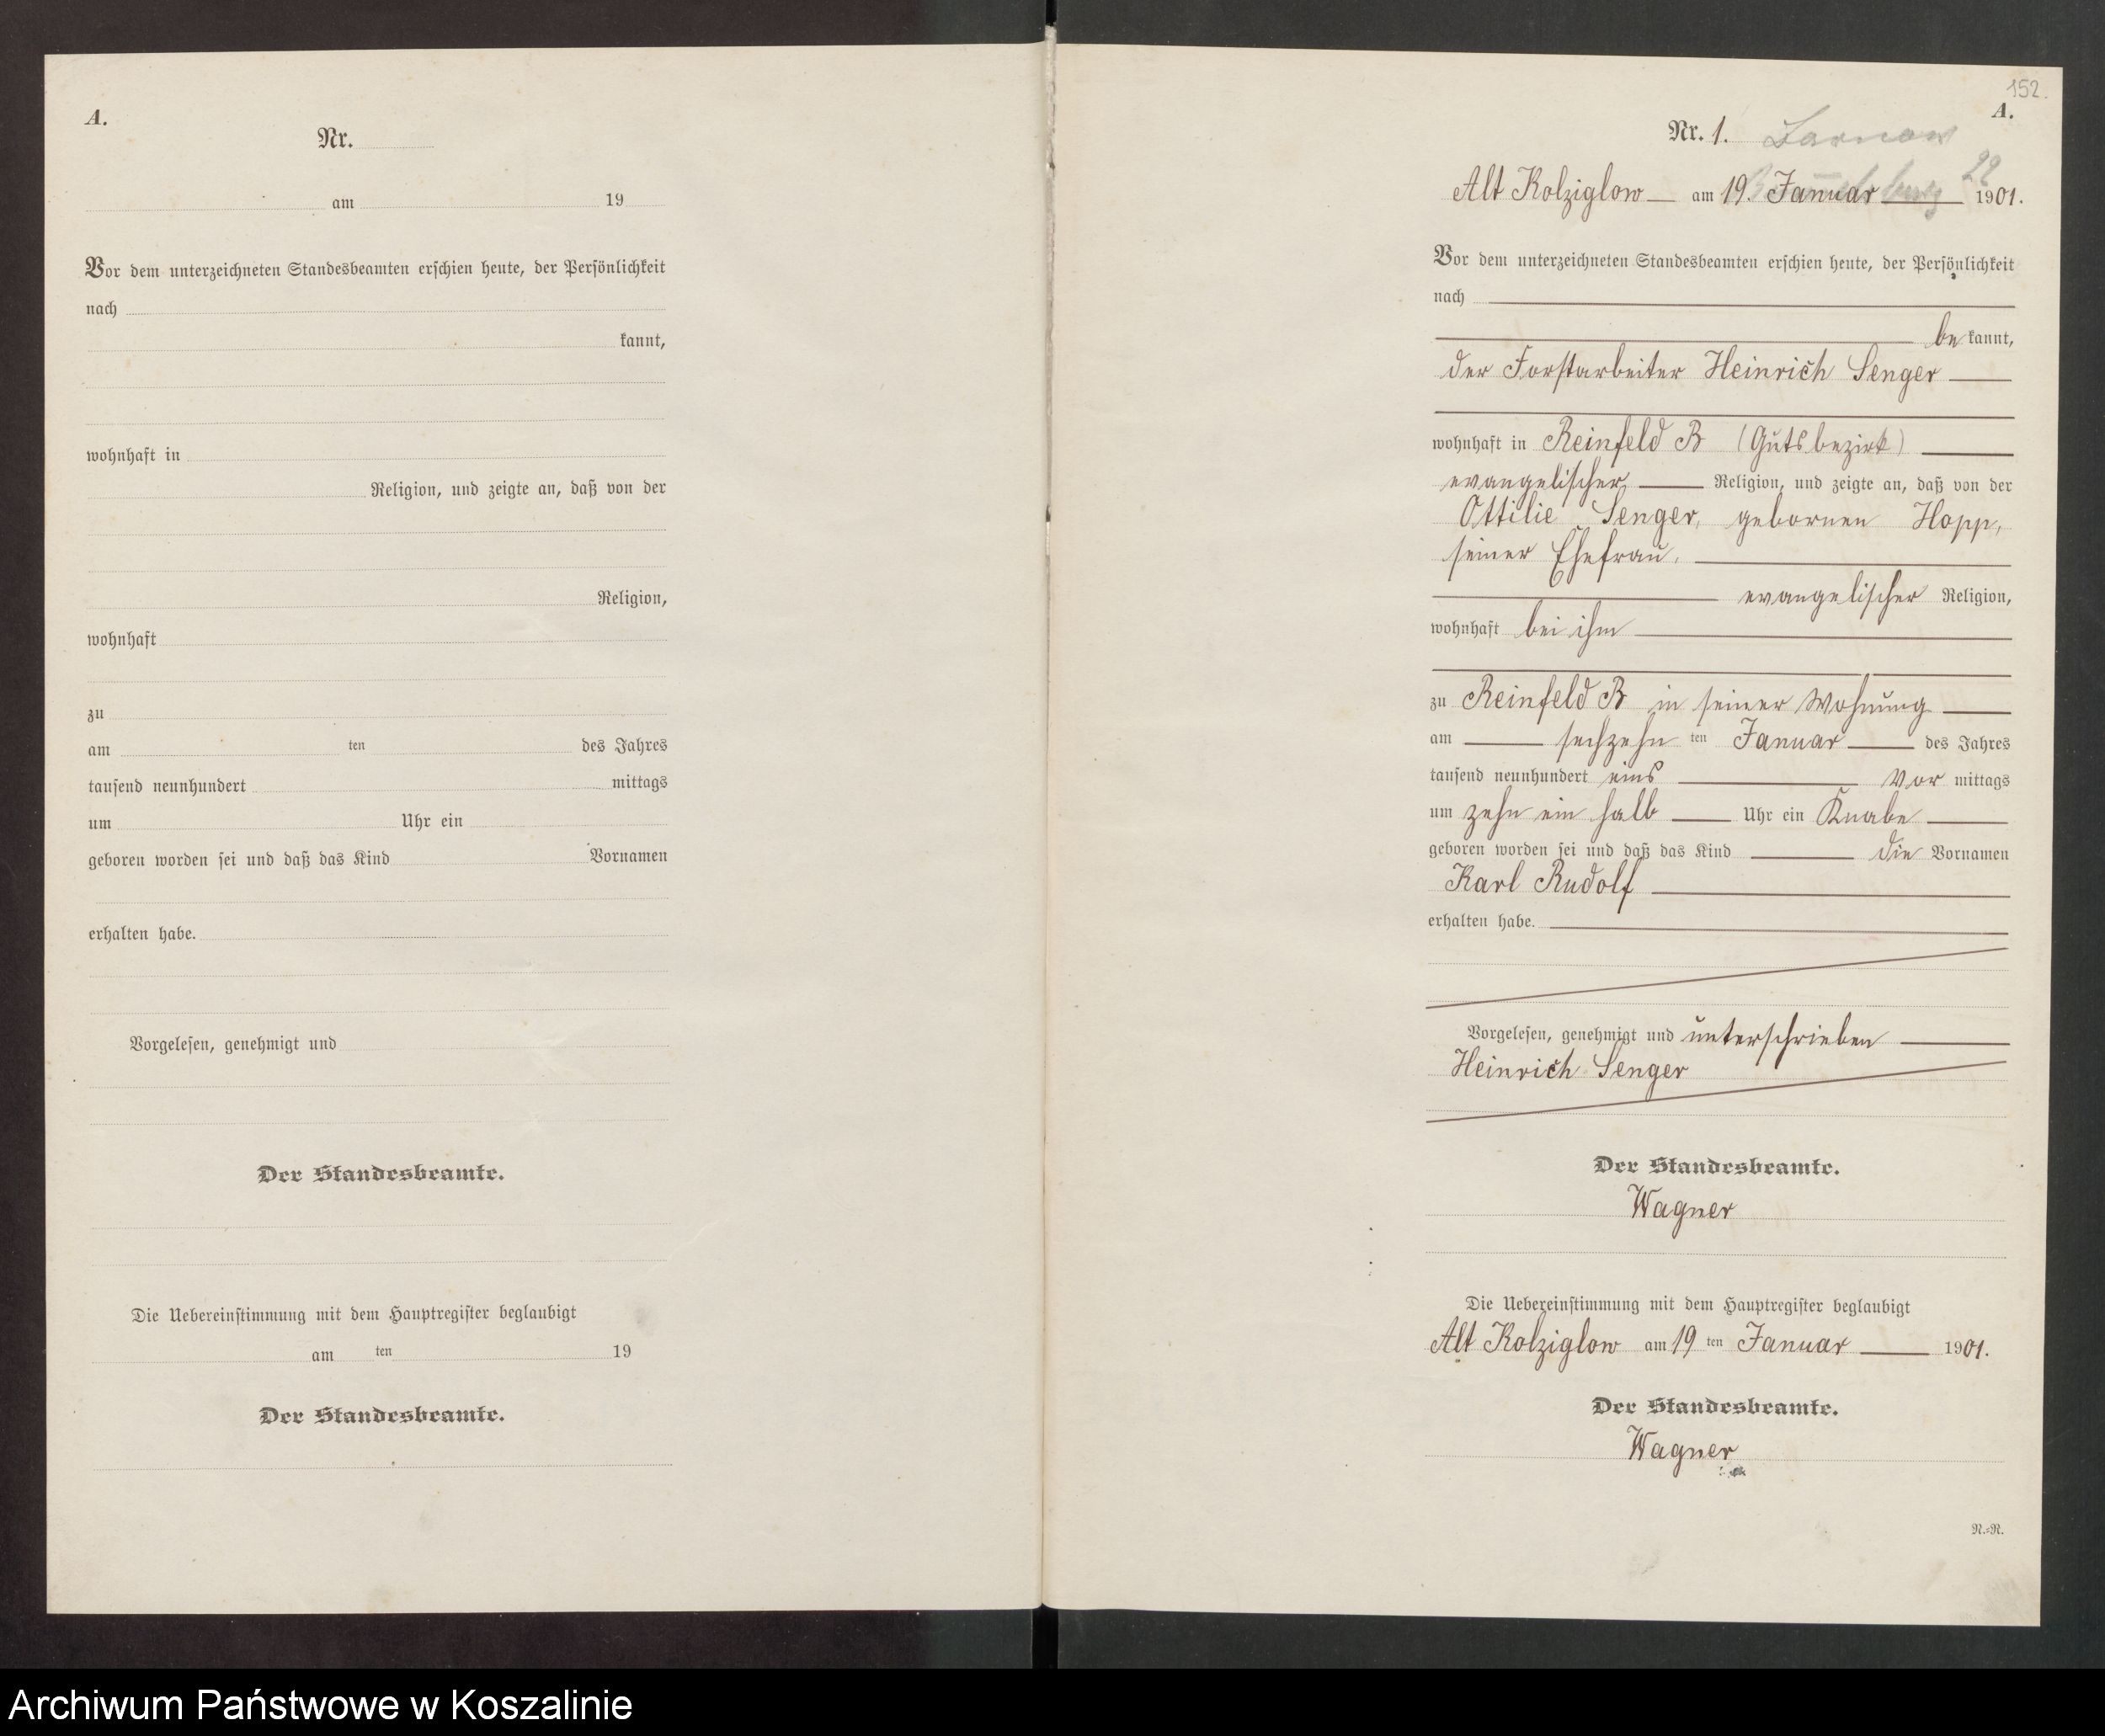 A.
Nr.
am 19
Vor dem unterzeichneten Standesbeamten erschien heute, der Persönlichkeit
nach
kannt,
wohnhaft in
Religion, und zeigte an, daß von der
Religion,
wohnhaft
zu
am ten des Jahres
tausend neunhundert mittags
um Uhr ein
geboren worden sei und daß das Kind Vornamen
erhalten habe.
Vorgelesen, genehmigt und
Der Standesbeamte.
Die Uebereinstimmung mit dem Hauptregister beglaubigt
am ten 19
Der Standesbeamte.
152.
A.
Nr. 1.
Alt Kolziglow am 19. Januar 1901.
Vor dem unterzeichneten Standesbeamten erschien heute, der Persönlichkeit
nach
bekannt,
der Forstarbeiter Heinrich Senger
wohnhaft in Reinfeld B (Gutsbezirk)
evangelischer Religion, und zeigte an, daß von der
Ottilie Senger, gebornen Hopp,
seiner Ehefrau,
evangelischer Religion,
wohnhaft bei ihm
zu Reinfeld B in seiner Wohnung
am sechzehn ten Januar des Jahres
tausend neunhundert eins Vor mittags
um zehn ein halb Uhr ein Knabe
geboren worden sei und daß das Kind die Vornamen
Karl Rudolf
erhalten habe.
Vorgelesen, genehmigt und unterschrieben
Heinrich Senger
Der Standesbeamte.
Wagner
Die Uebereinstimmung mit dem Hauptregister beglaubigt
Alt Kolziglow am 19 ten Januar 1901.
Der Standesbeamte.
Wagner
N.=N.
Archiwum Państwowe w Koszalinie